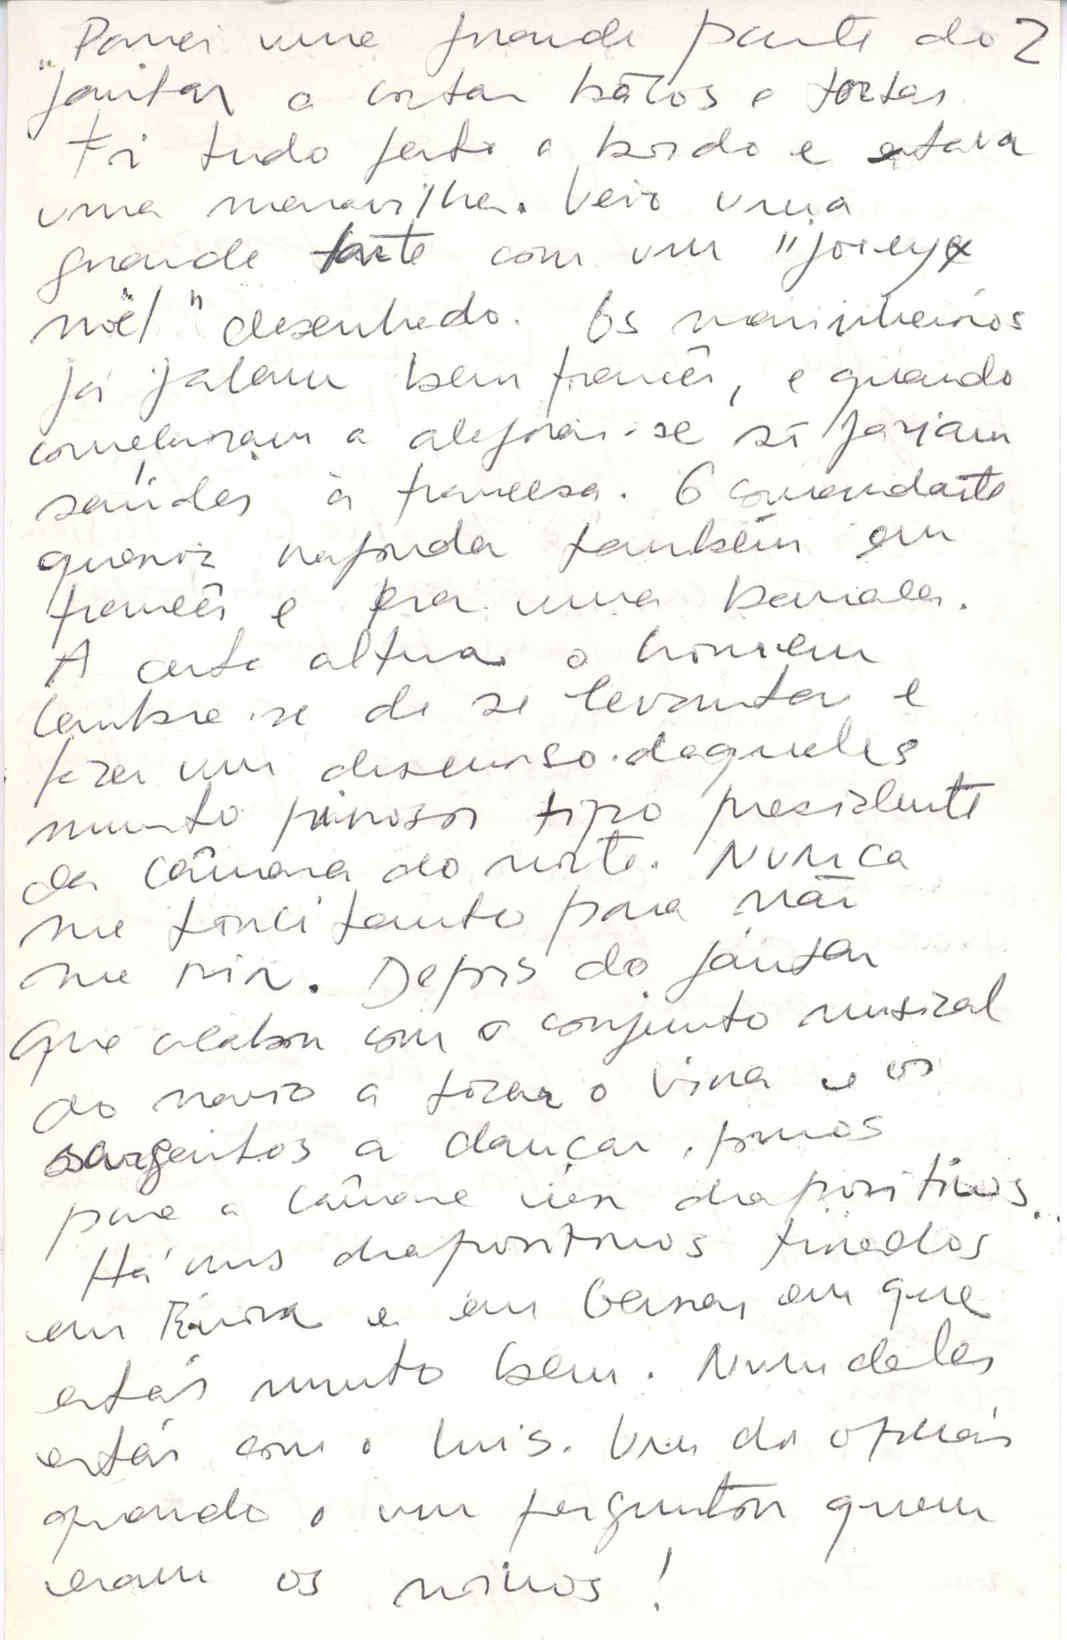 Passei uma grande parte do 2
jantar a cortar bôlos e tortas
Foi tudo feito a bordo e estava
uma maravilha. Veio uma
grande tarte com um "joieyx
noël" desenhado. Os marinheiros
já falam bem francês, e quando
começaram a alegrar-se só faziam
saúdes à francesa. O comandante
queria responder também em
francês e era uma barraca.
A certa altura o homem
lembra-se de se levantar e
fazer um discurso daqueles
muito pirosos tipo presidente
da câmara do norte. Nunca
me torci tanto para não
me rir. Depois do jantar
que acabou com o conjunto musical
do navio a tocar o vira e os
sargentos a dançar, fomos
para a câmara ver diapositivos...
Há uns diapositivos tirados
em Évora e em em que
estás muito bem. Num deles
estás com o Luis. Um dos oficiais
quando o viu perguntou quem
eram os noivos!